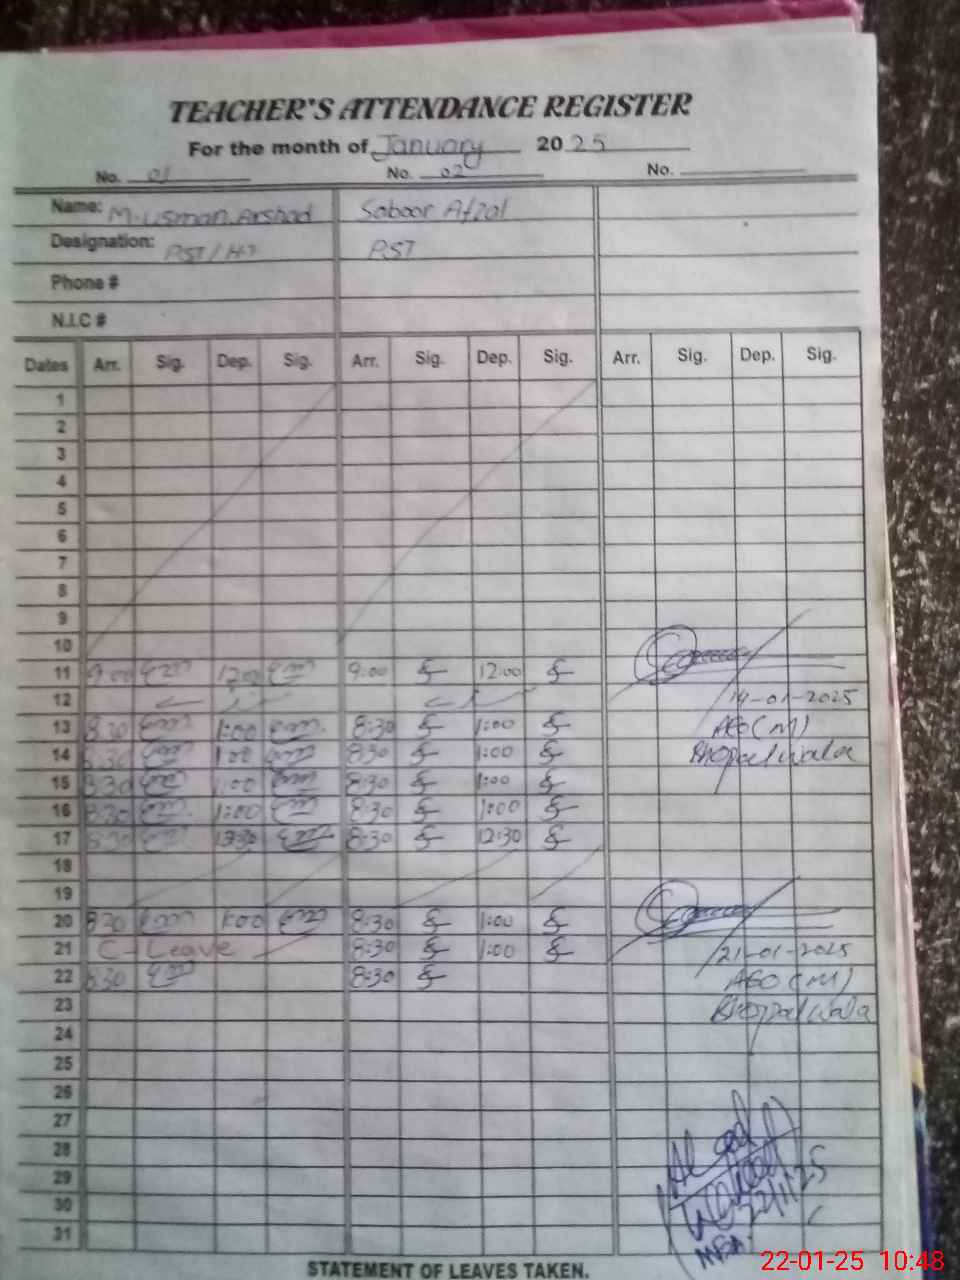 TEACHER'S ATTENDANCE REGISTER
For the month of January 2025
No. 01 No. 02 No.
Name: M.Usman.Arshad Saboor Afzal
Designation: PST/H.T PST
Phone #
N.I.C #
Dates Arr. Sig. Dep. Sig. Arr. Sig. Dep. Sig. Arr. Sig. Dep. Sig.
1
2
3
4
5
6
7
8
9
10
11 9:00 12:00 9:00 12:00
12 14-01-2025
13 8:30 1:00 8:30 1:00 AEO(M)
14 8:30 1:00 8:30 1:00 Bhopalwala
15 8:30 1:00 8:30 1:00
16 8:30 1:00 8:30 1:00
17 8:30 8:30 12:30
18
19
20 8:30 1:00 8:30 1:00
21 C-Leave 8:30 1:00 21-01-2025
22 8:30 8:30 AEO(M)
23 Bhopalwala
24
25
26
27
28
29
30 22/1/25
31 MEA
STATEMENT OF LEAVES TAKEN.
22-01-25 10:48